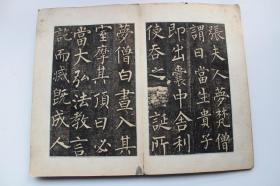 張夫人夢梵僧
謂曰當生貴子
即出囊中舍利
使吞之誕所
夢僧白晝入其
室摩其頂曰必
當大弘法教言
訖而滅既成人